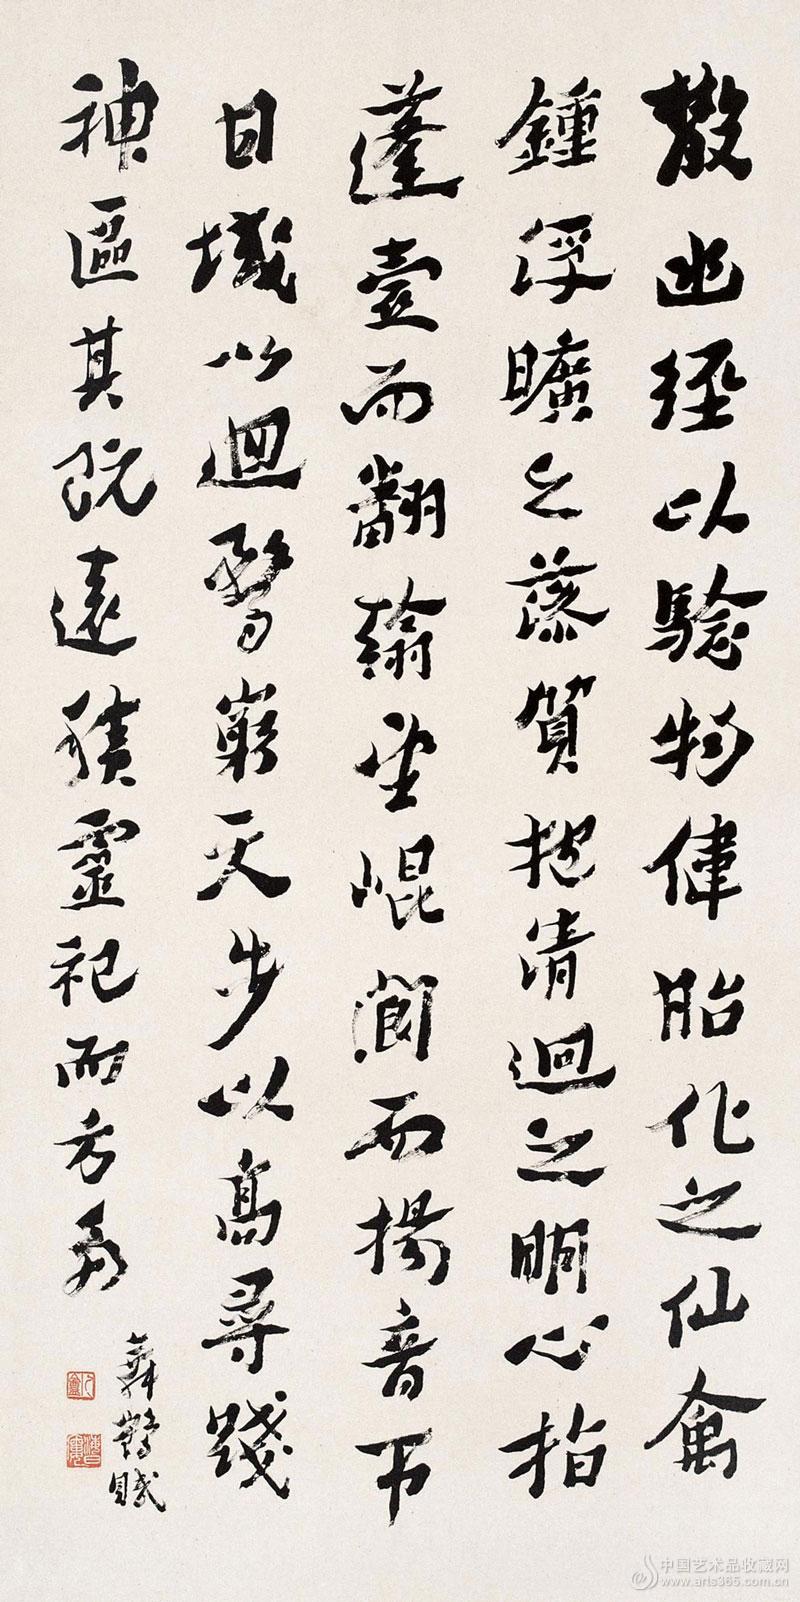 散幽經以驗物偉胎化之仙禽
鍾浮曠之藻質抱清迴之明心指
蓬壺而翻翰望崐閬而揚音帀
日域以迴騖窮天步以高尋踐
神區其既遠積靈祀而方多
舞鶴賦
中国艺术品收藏网
www.arts365.com.cn